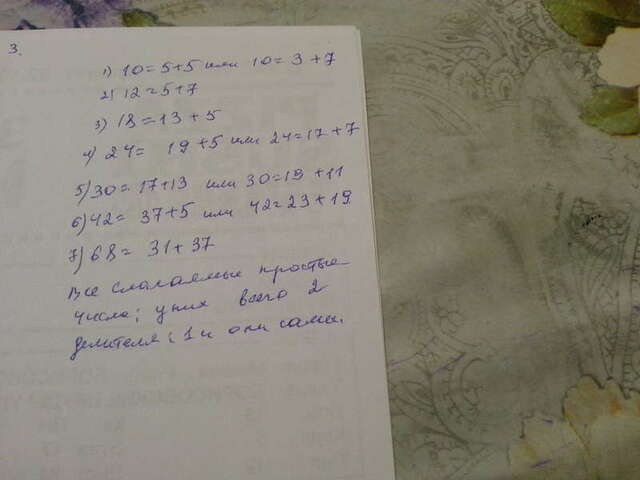 3.
1) 10 = 5+5 или 10 = 3+7
2) 12 = 5+7
3) 18 = 13 + 5
4) 24 = 19+5 или 24 = 17+7
5) 30 = 17+13 или 30 = 19+11
6) 42 = 37+5 или 42 = 23+19
7) 68 = 31+37
Все слагаемые простые
числа; у них всего 2
делителя: 1 и они сами.